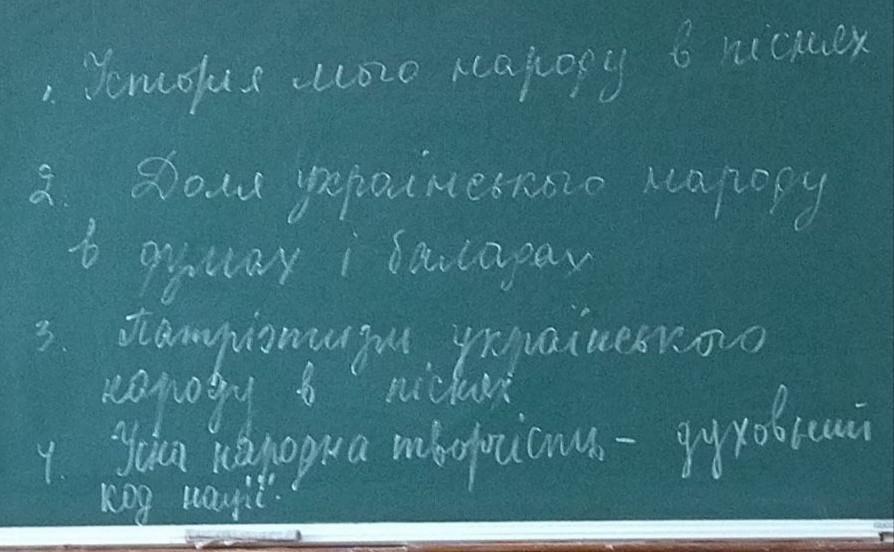 1. Історія мого народу в піснях
2. Доля українського народу
в думах і баладах
3. Патріотизм українського
народу в піснях
4. Усна народна творчість – духовний
код нації.